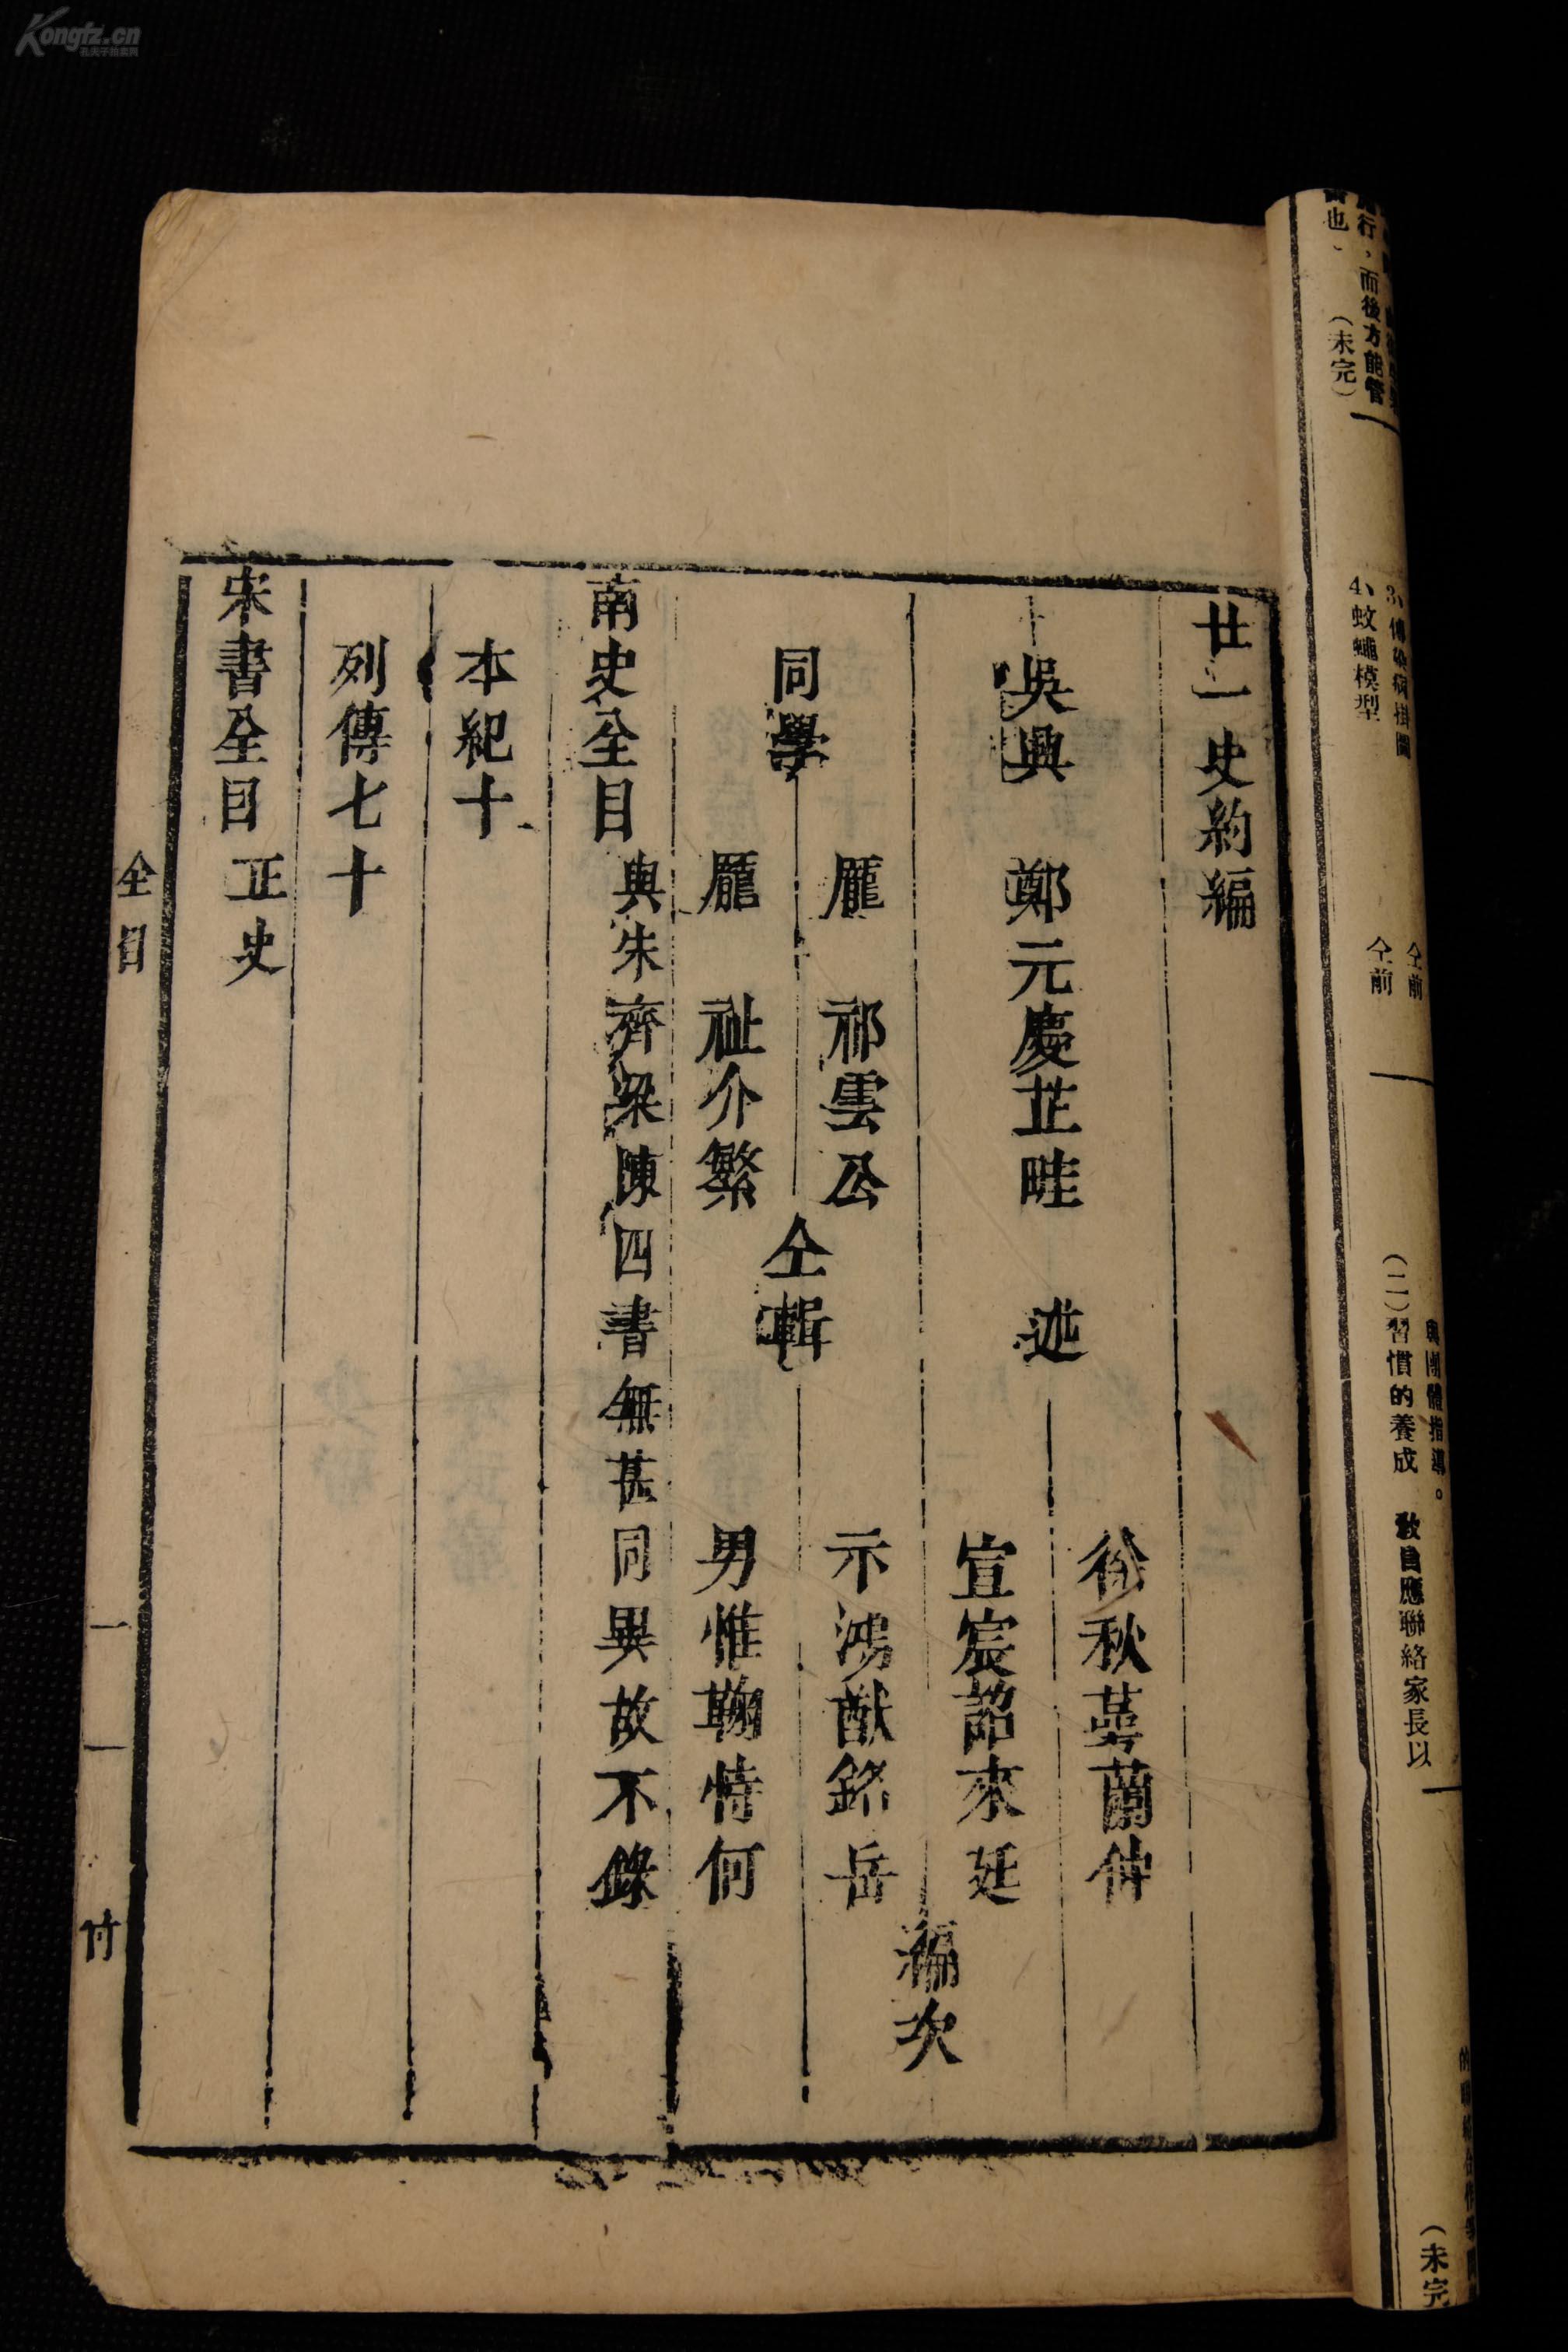 廿一史約編
吳興 鄭元慶芷畦 述
徐秋蕚蘭仲
宣宸詔來廷
同學
龎 祁雲公
龎 祉介繁
仝輯
示鴻猷銘岳
男惟鞠恃何
編次
南史全目 與宋齊梁陳四書無甚同異故不錄
本紀十
列傳七十
宋書全目 正史
全目 一 付
行，而後方能管
也、 (未完)
3、傳染病掛圖 仝前
4、蚊蠅模型 仝前
與團體指導。
(二)習慣的養成 教員應聯絡家長以
(未完
Kongfz.cn